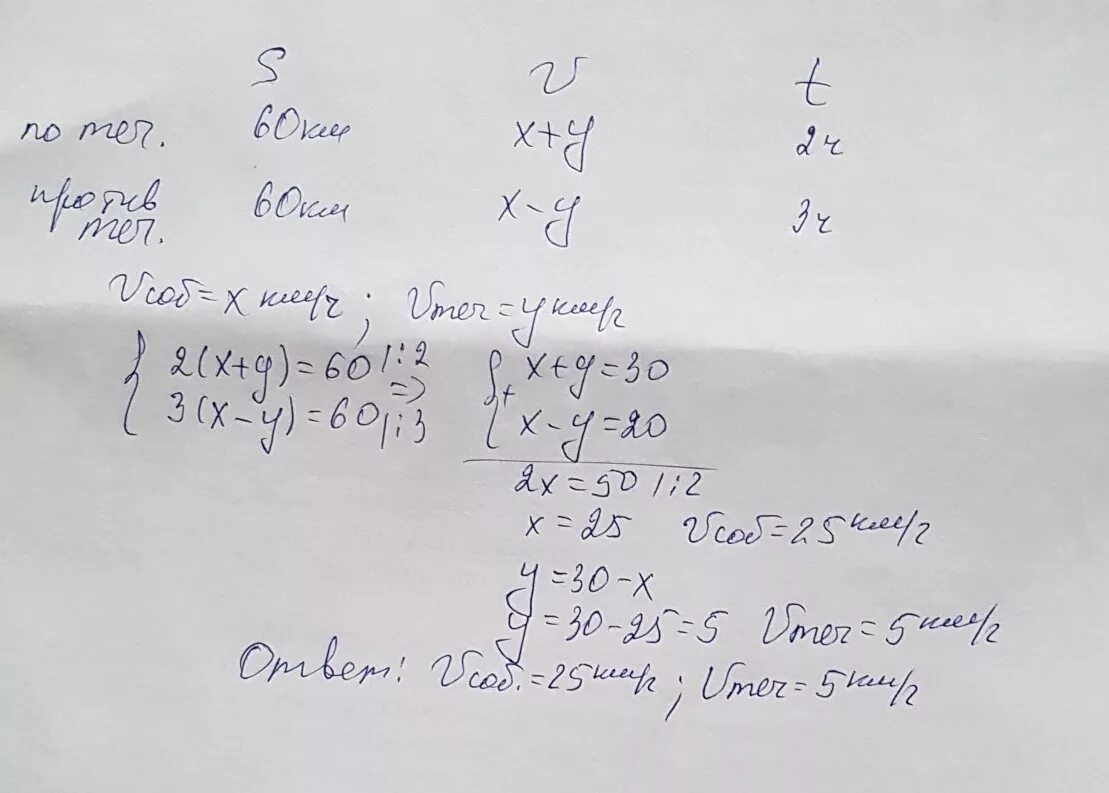 S V t
по теч. 60км x+y 2ч
против теч. 60км x-y 3ч
Vсоб=x км/ч; Vтеч=y км/ч
{ 2(x+y)=60 |:2 => { x+y=30
3(x-y)=60 |:3 + x-y=20
2x=50 |:2
x=25 Vсоб=25км/ч
y=30-x
y=30-25=5 Vтеч=5км/ч
Ответ: Vсоб.=25км/ч; Vтеч=5км/ч